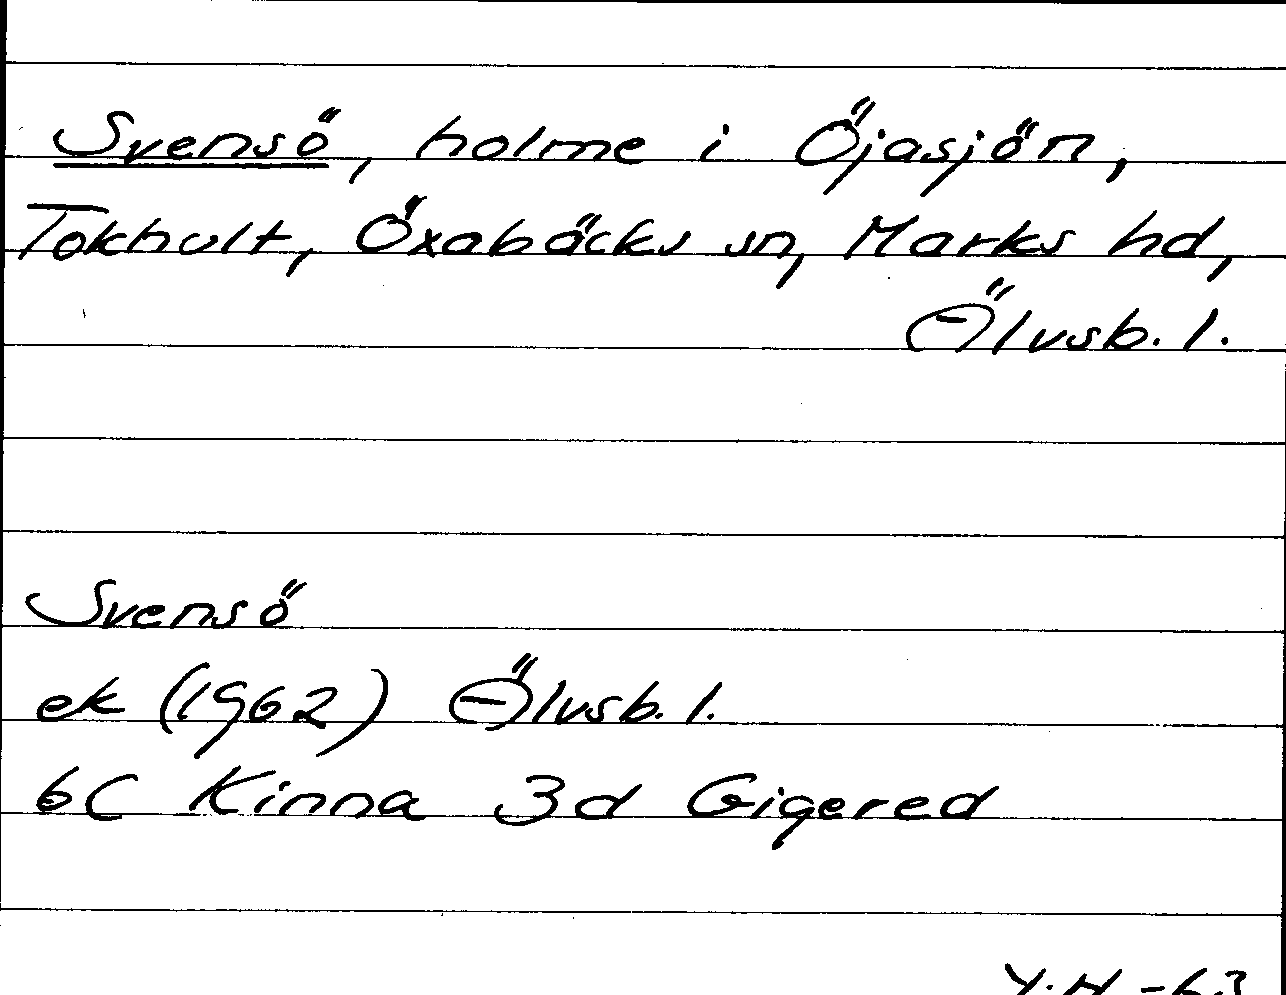 Svensö, holme i Öjasjön,
Tokhult, Öxabäcks sn, Marks hd,
Älvsb. l.
Svensö
ek (1962) Älvsb. l.
6C Kinna 3d Gigered
Y.H -63